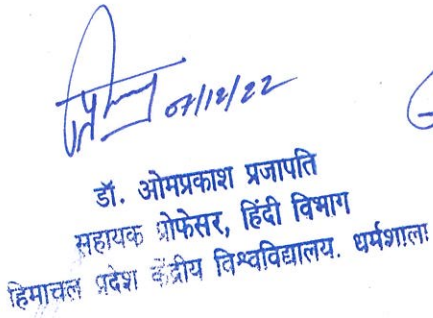 07/12/22
डॉ. ओमप्रकाश प्रजापति
सहायक प्रोफेसर, हिंदी विभाग
हिमाचल प्रदेश केंद्रीय विश्वविद्यालय. धर्मशाला